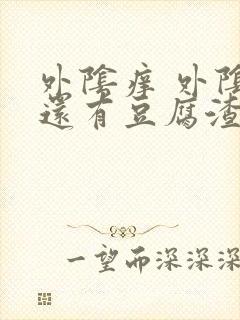 外陰痒 外陰
還有豆腐渣
一望而深深深